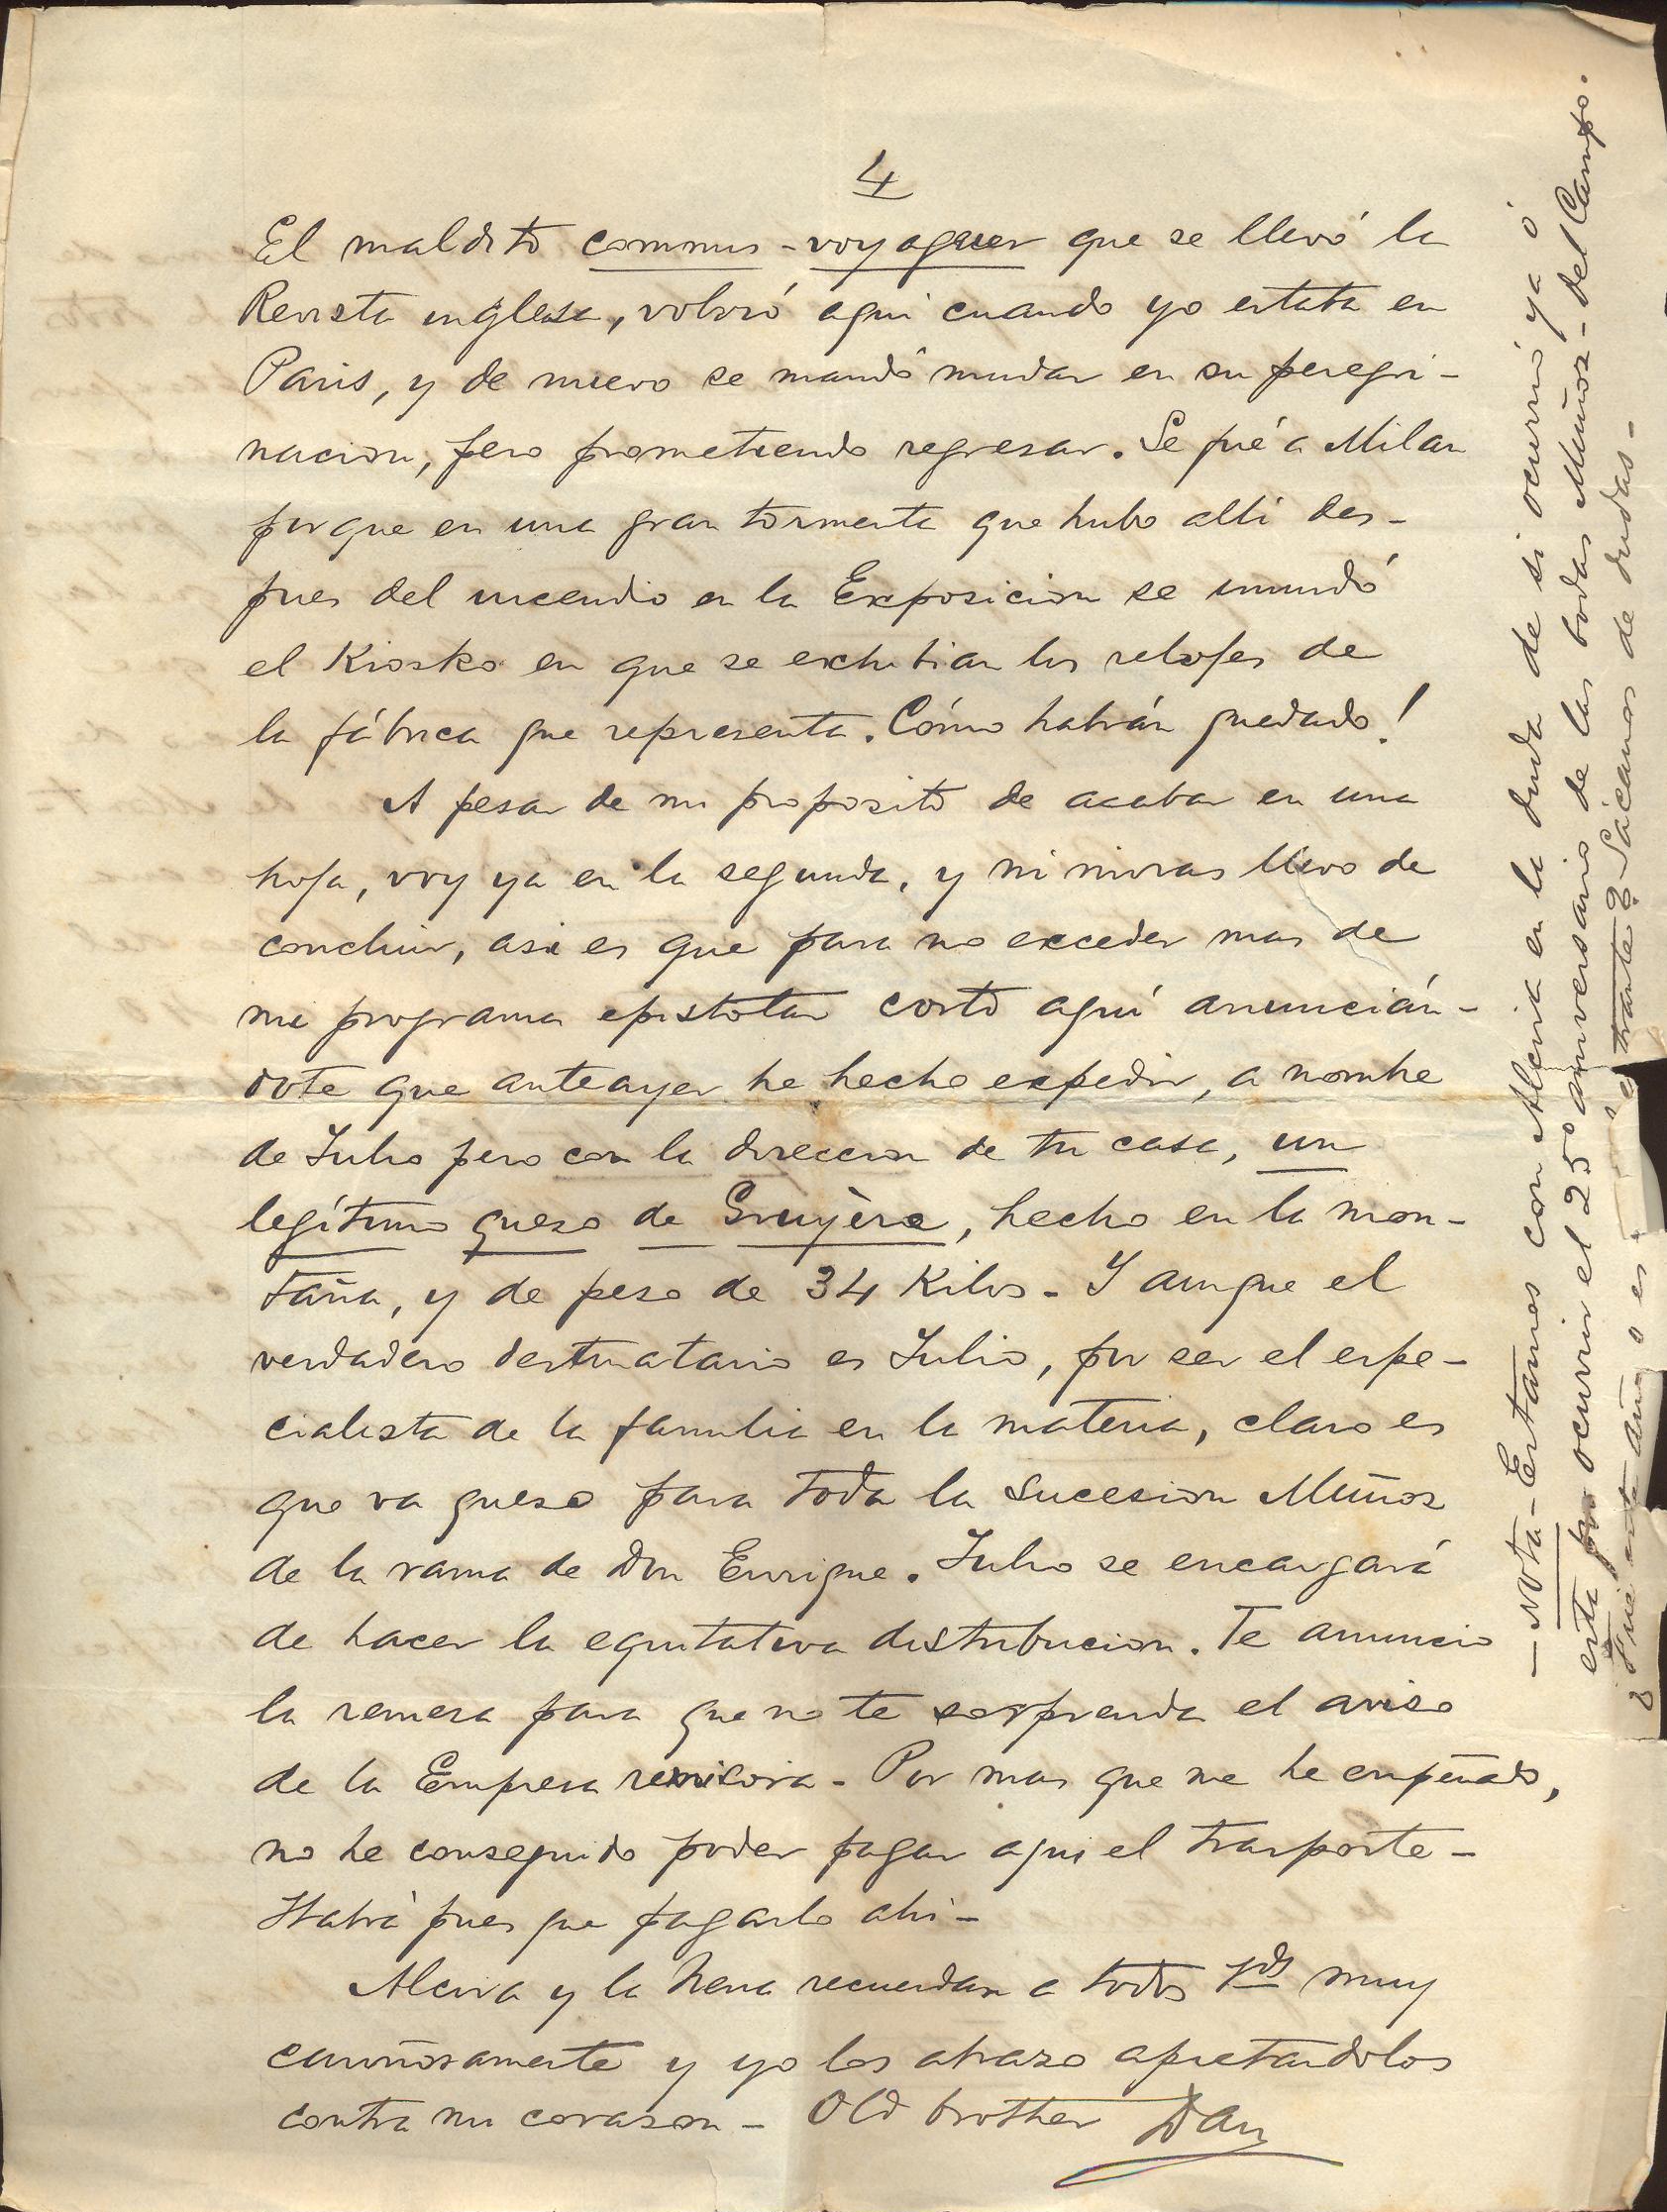 4
El maldito commis-voyaguer que se llevó la
Revista inglesa, volvió aqui cuando yo estaba en
Paris, y de nuevo se mandó mudar en su peregri-
nacion, pero prometiendo regresar. Se fué a Milan
porque en una gran tormenta que hubo alli des-
pues del incendio en la Exposicion se inundó
el Kiosko en que se exhibian los relojes de
la fábrica que representa. Cómo habrán quedado!
A pesar de mi proposito de acabar en una
hoja, voy ya en la segunda, y ni miras llevo de
concluir, asi es que para no exceder mas de
mi programa epistolar corto aquí anuncián-
dote que anteayer he hecho expedir, a nombre
de Julio pero con la direccion de tu casa, un
legítimo queso de Gruyère, hecho en la mon-
taña, y de peso de 34 Kilos - Y aunque el
verdadero destinatario es Julio, por ser el espe-
cialista de la familia en la materia, claro es
que va queso para toda la sucesion Muñoz
de la rama de Don Enrique. Julio se encargará
de hacer la equitativa distribucion. Te anuncio
la remesa para que no te sorprenda el aviso
de la Empresa remisora - Por mas que me he empeñado,
no he conseguido poder pagar aqui el trasporte -
Habrá pues que pagarlo ahi -
Alcira y la Nena recuerdan a todos Vds muy
cariñosamente y yo los abrazo apretandolos
contra mi corazon - Old brother Dan
- Nota - Estamos con Alcira en la duda de si ocurrió ya ó
está por ocurrir el 25º aniversario de las bodas Muñoz - del Campo.
¿Fué este año o es el entrante? Sácanos de dudas -